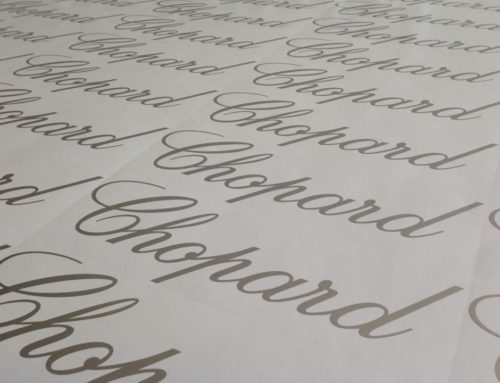 Chopard
Chopard
Chopard
Chopard
Chopard
Chopard
Chopard
Chopard
Chopard
Chopard
Chopard
Chopard
Chopard
Chop